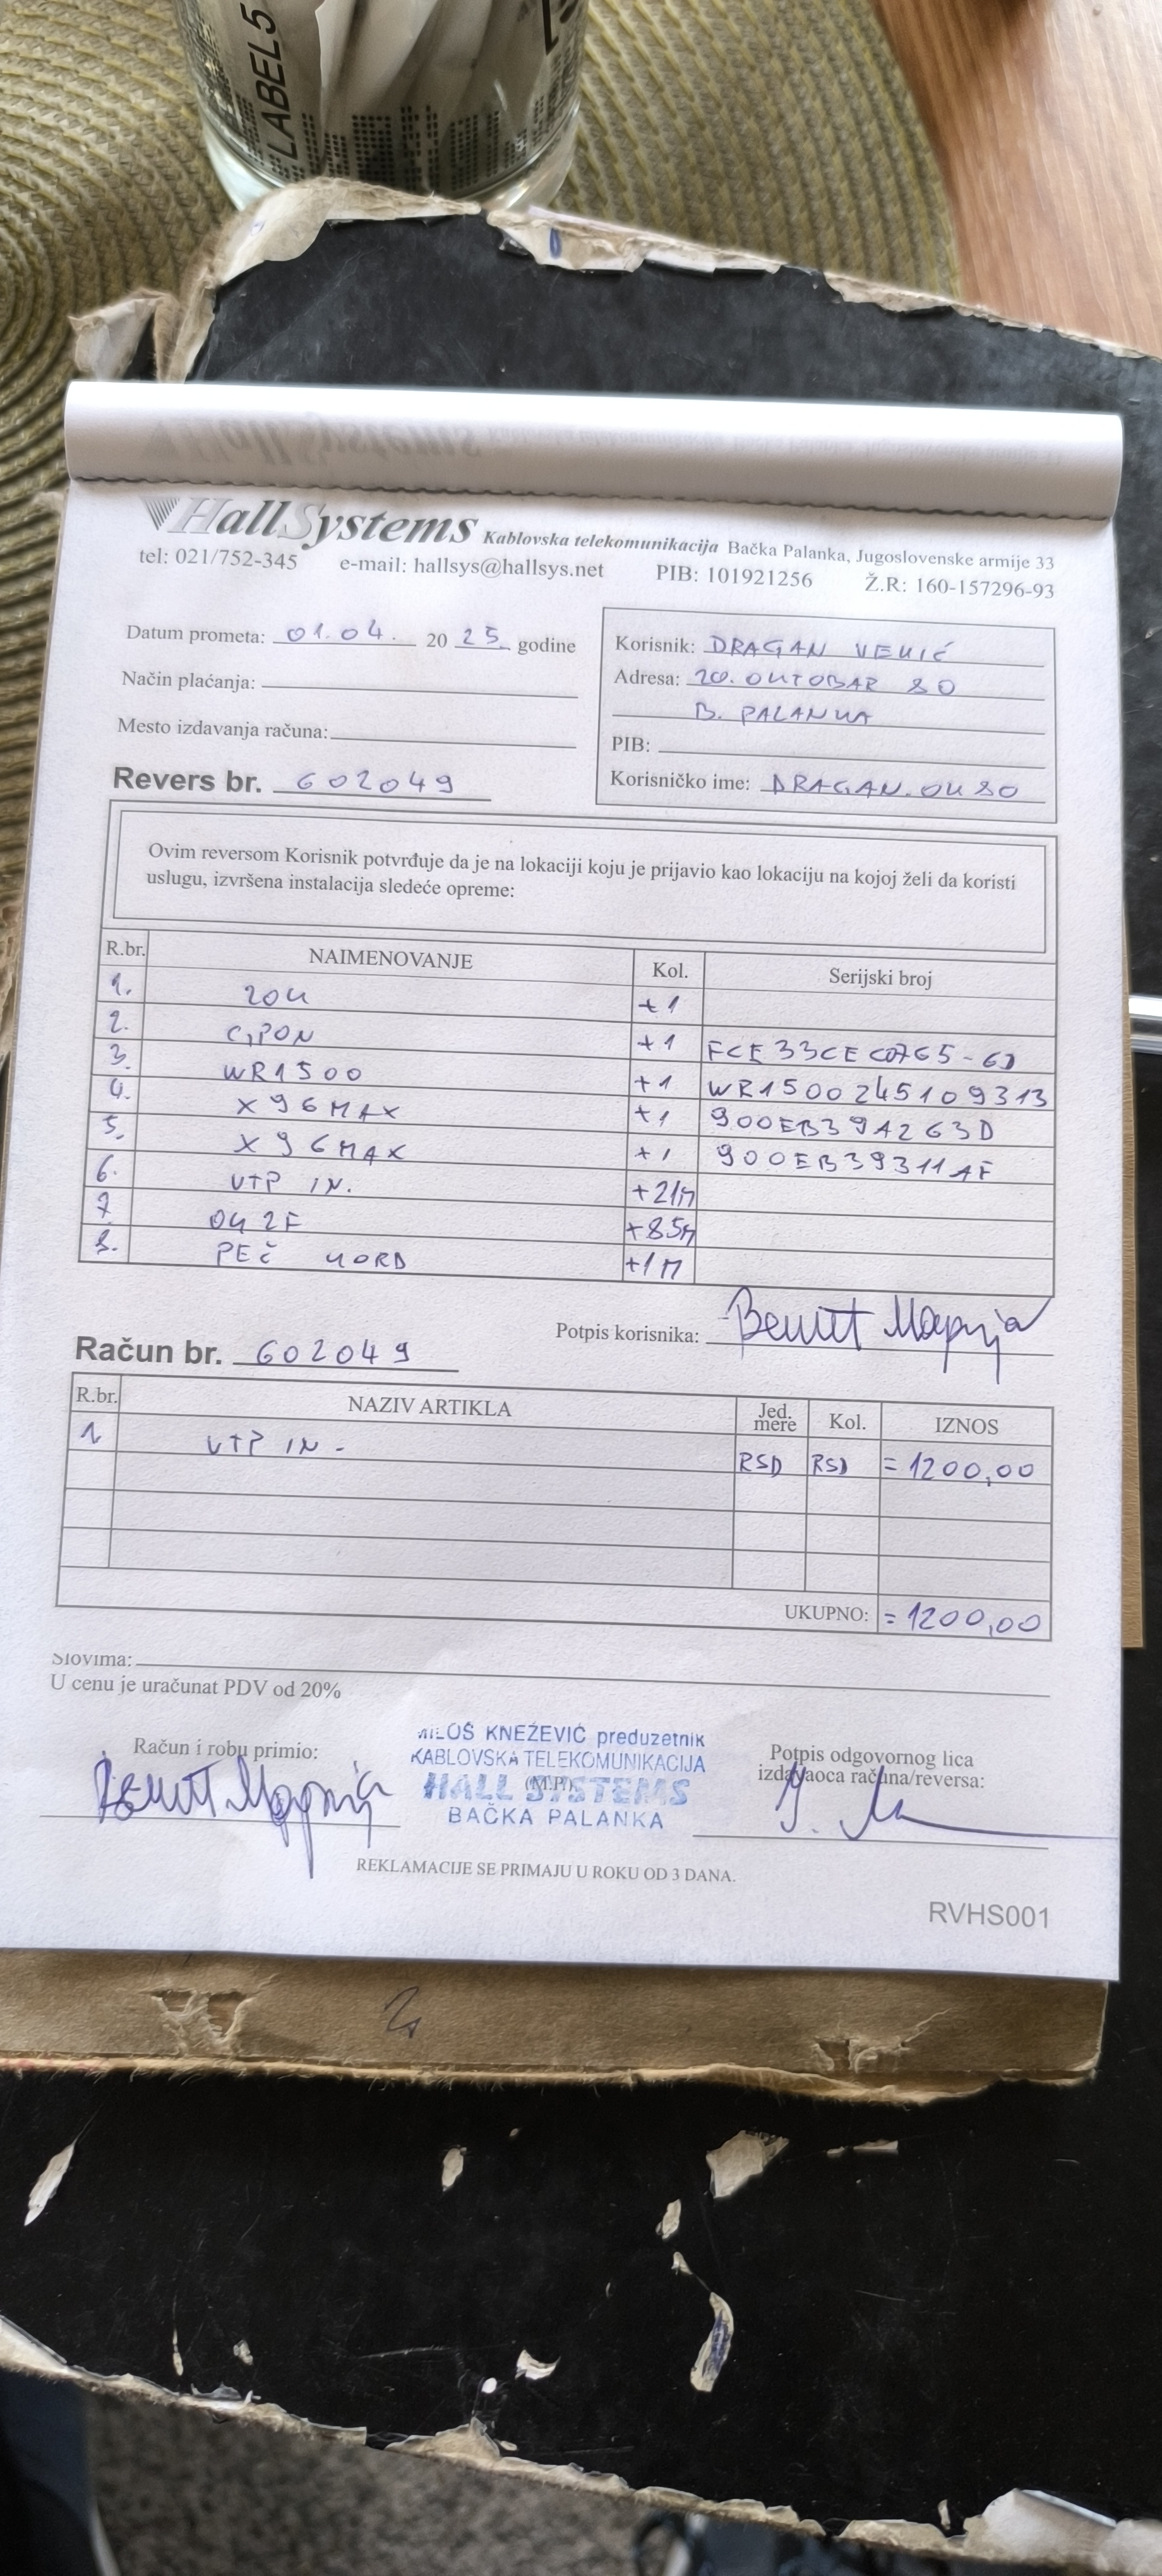 LABEL5
HallSystems Kablovska telekomunikacija Bačka Palanka, Jugoslovenske armije 33
tel: 021/752-345 e-mail: hallsys@hallsys.net PIB: 101921256 Ž.R: 160-157296-93
Datum prometa: 01.04. 20 25 godine
Način plaćanja:
Mesto izdavanja računa:
Revers br. 602049
Korisnik: DRAGAN VEKIĆ
Adresa: 20. OKTOBAR 80
B. PALANKA
PIB:
Korisničko ime: DRAGAN.OK80
Ovim reversom Korisnik potvrđuje da je na lokaciji koju je prijavio kao lokaciju na kojoj želi da koristi
uslugu, izvršena instalacija sledeće opreme:
R.br. NAIMENOVANJE Kol. Serijski broj
1. ZOK +1
2. GPON +1 FCE33CEC0765-6D
3. WR1500 +1 WR1500245109313
4. X96MAX +1 900EB39A263D
5. X96MAX +1 900EB39311AF
6. UTP IN. +21M
7. OK 2F +85M
8. PEČ KORD +1M
Potpis korisnika: Векић Марија
Račun br. 602049
R.br. NAZIV ARTIKLA Jed. mere Kol. IZNOS
1 UTP IN - RSD RSD =1200,00
UKUPNO: =1200,00
Slovima:
U cenu je uračunat PDV od 20%
Račun i robu primio:
MILOŠ KNEŽEVIĆ preduzetnik
KABLOVSKA TELEKOMUNIKACIJA
(M.P.)
HALL SYSTEMS
BAČKA PALANKA
Potpis odgovornog lica
izdavaoca računa/reversa:
REKLAMACIJE SE PRIMAJU U ROKU OD 3 DANA.
RVHS001